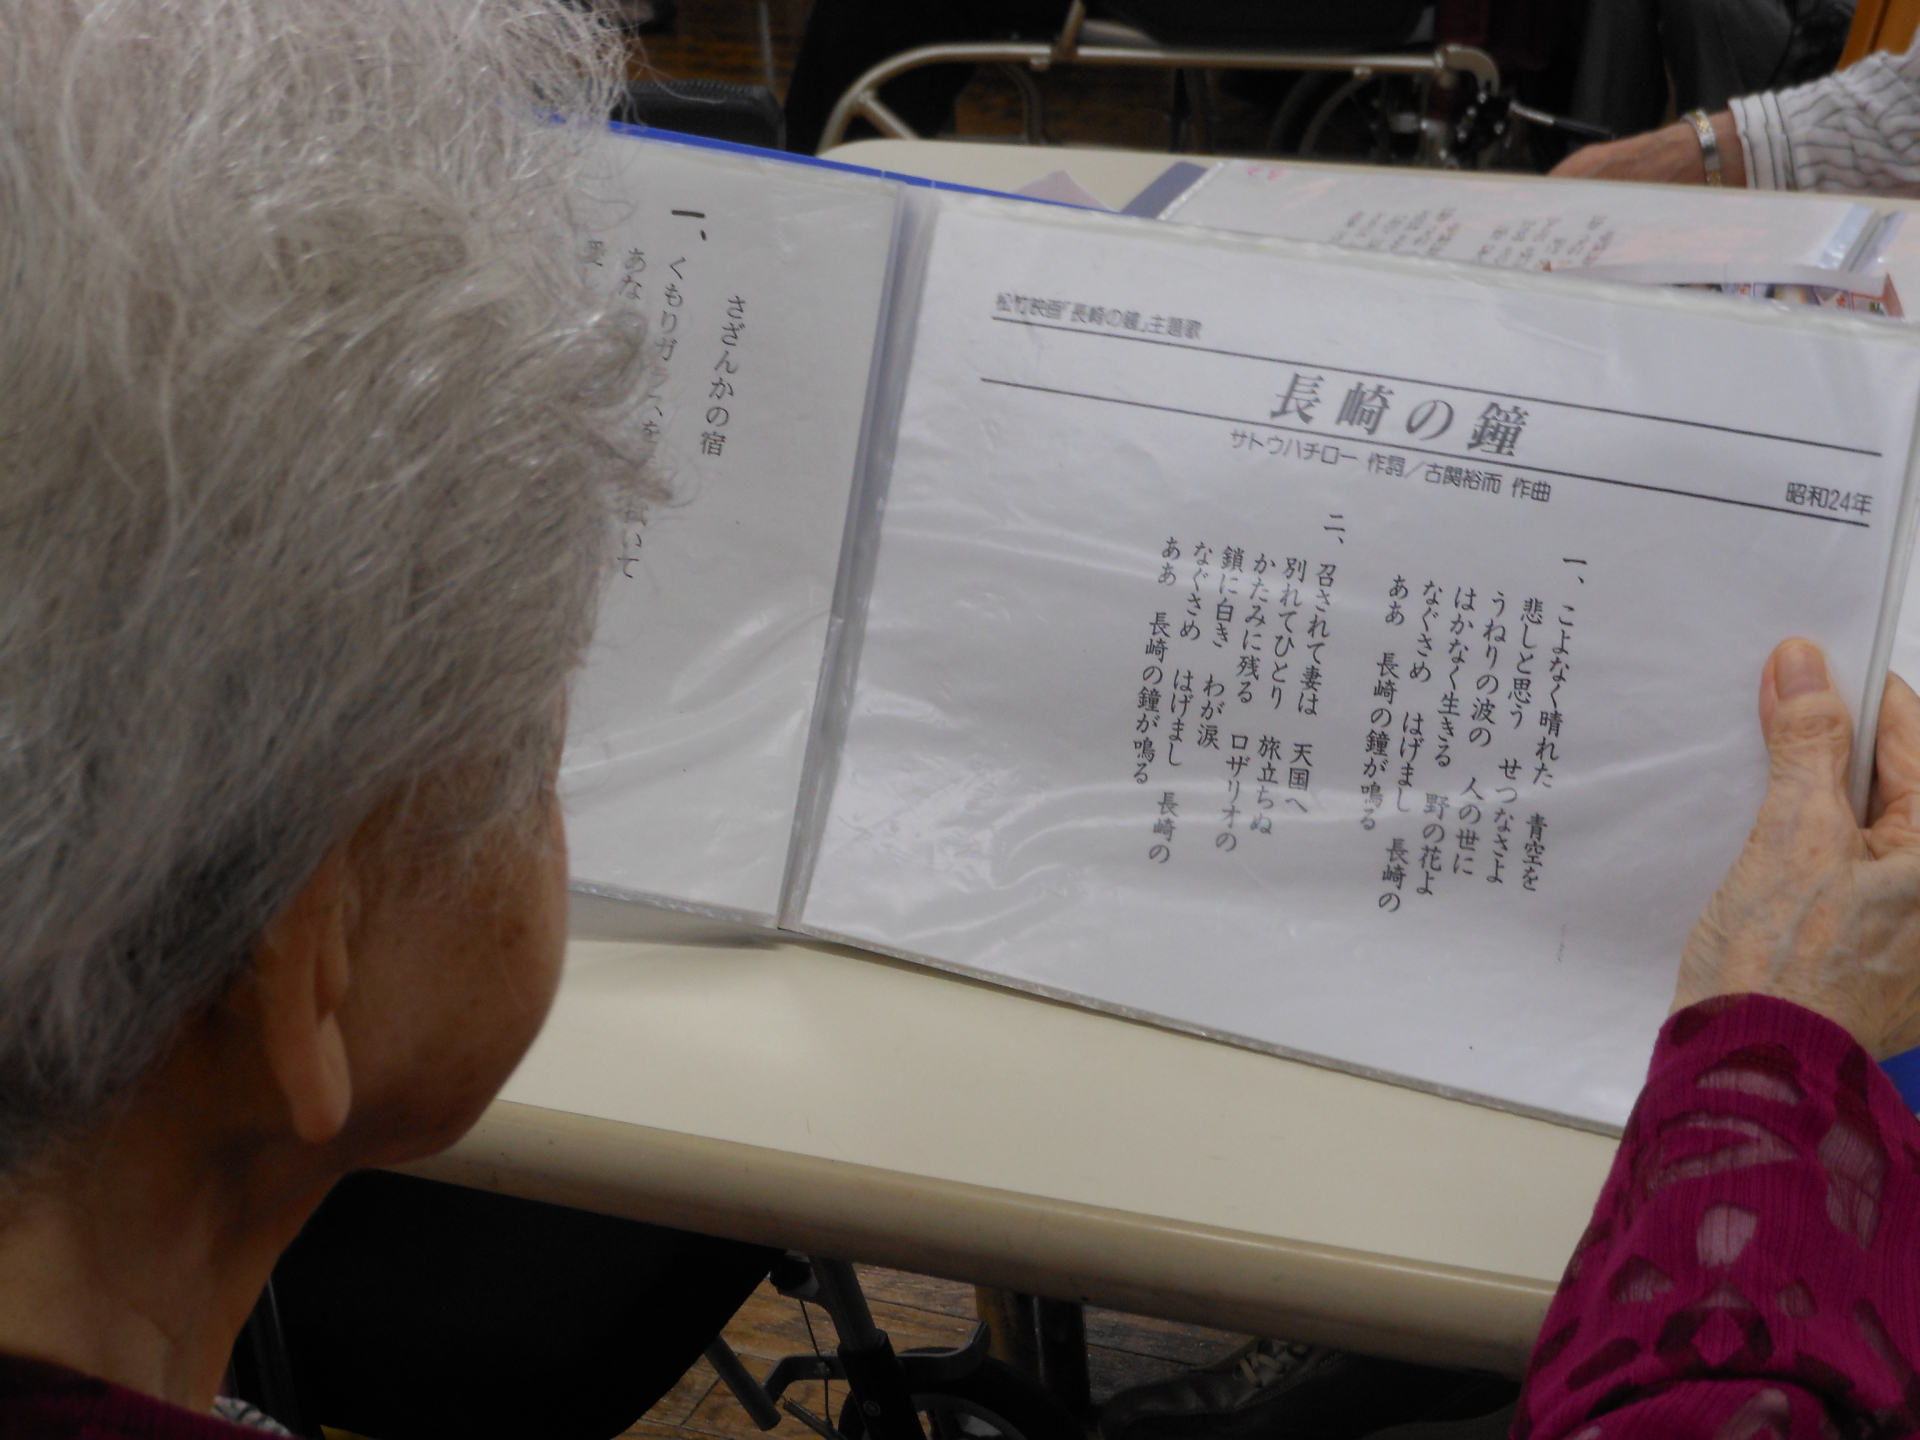 松竹映画「長崎の鐘」主題歌
長崎の鐘
サトウハチロー 作詞／古関裕而 作曲
昭和24年
一、こよなく晴れた 青空を
悲しと思う せつなさよ
うねりの波の 人の世に
はかなく生きる 野の花よ
なぐさめ はげまし 長崎の
ああ 長崎の鐘が鳴る
二、召されて妻は 天国へ
別れてひとり 旅立ちぬ
かたみに残る ロザリオの
鎖に白き わが涙
なぐさめ はげまし 長崎の
ああ 長崎の鐘が鳴る
さざんかの宿
一、くもりガラスを
拭いて
あな
愛